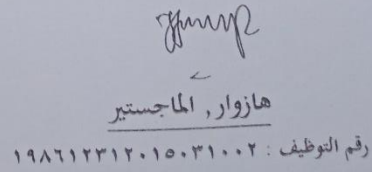 هازوار, الماجستير
رقم التوظيف : ١٩٨٦١٢٣١٢٠١٥٠٣١٠٠٢